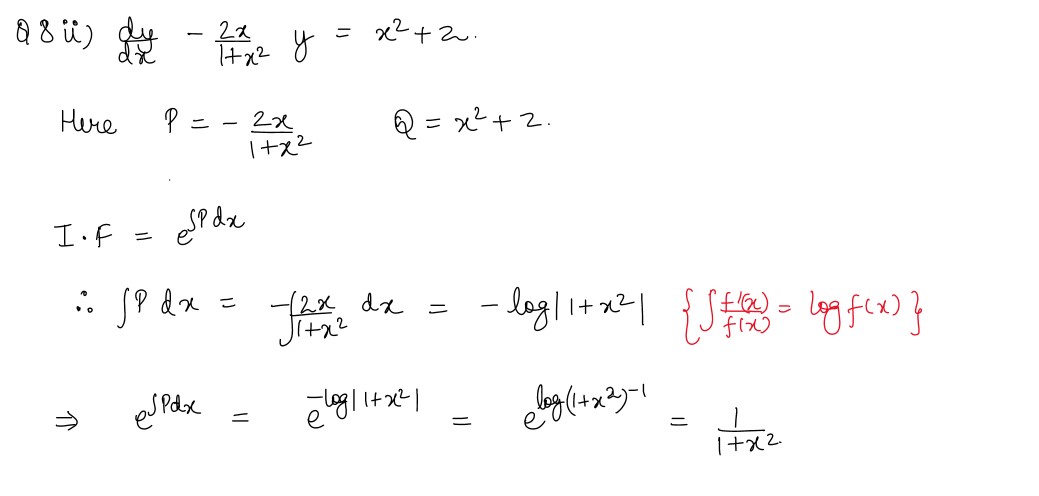 Q 8 ii) dy/dx - 2x/1+x² y = x² + 2.
Here P = - 2x/1+x² Q = x² + 2.
I.F = e^∫P dx
∴ ∫P dx = -∫2x/1+x² dx = - log|1+x²| {∫f'(x)/f(x) = log f(x)}
⇒ e^∫Pdx = e^-log|1+x²| = e^log(1+x²)^-1 = 1/1+x².